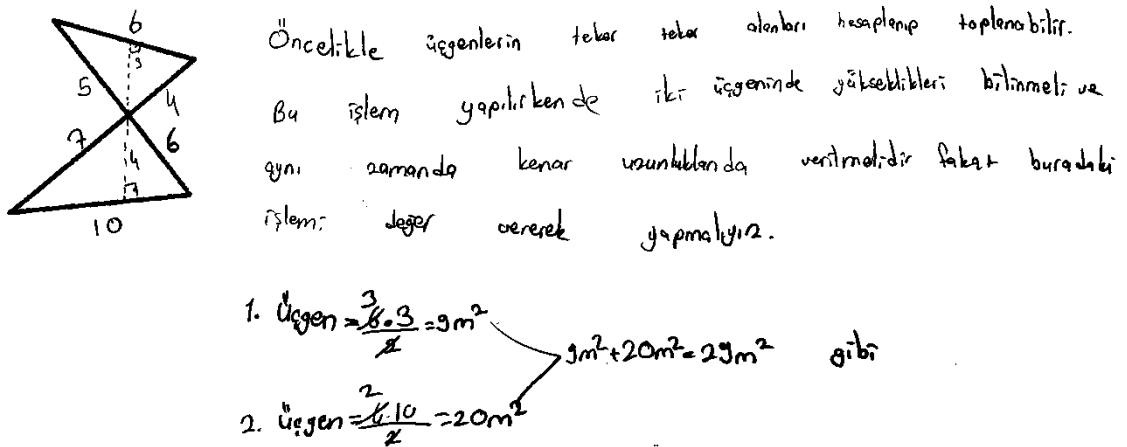 6
3
5
4
7
6
4
10
Öncelikle üçgenlerin teker teker alanları hesaplanıp toplanabilir.
Bu işlem yapılırken de iki üçgeninde yükseklikleri bilinmeli ve
aynı zamanda kenar uzunluklarıda verilmelidir fakat buradaki
işlemi değer vererek yapmalıyız.
1. Üçgen = 3 6.3/2 = 9m²
9m²+20m²=29m² gibi
2. üçgen = 2 4.10/2 = 20m²